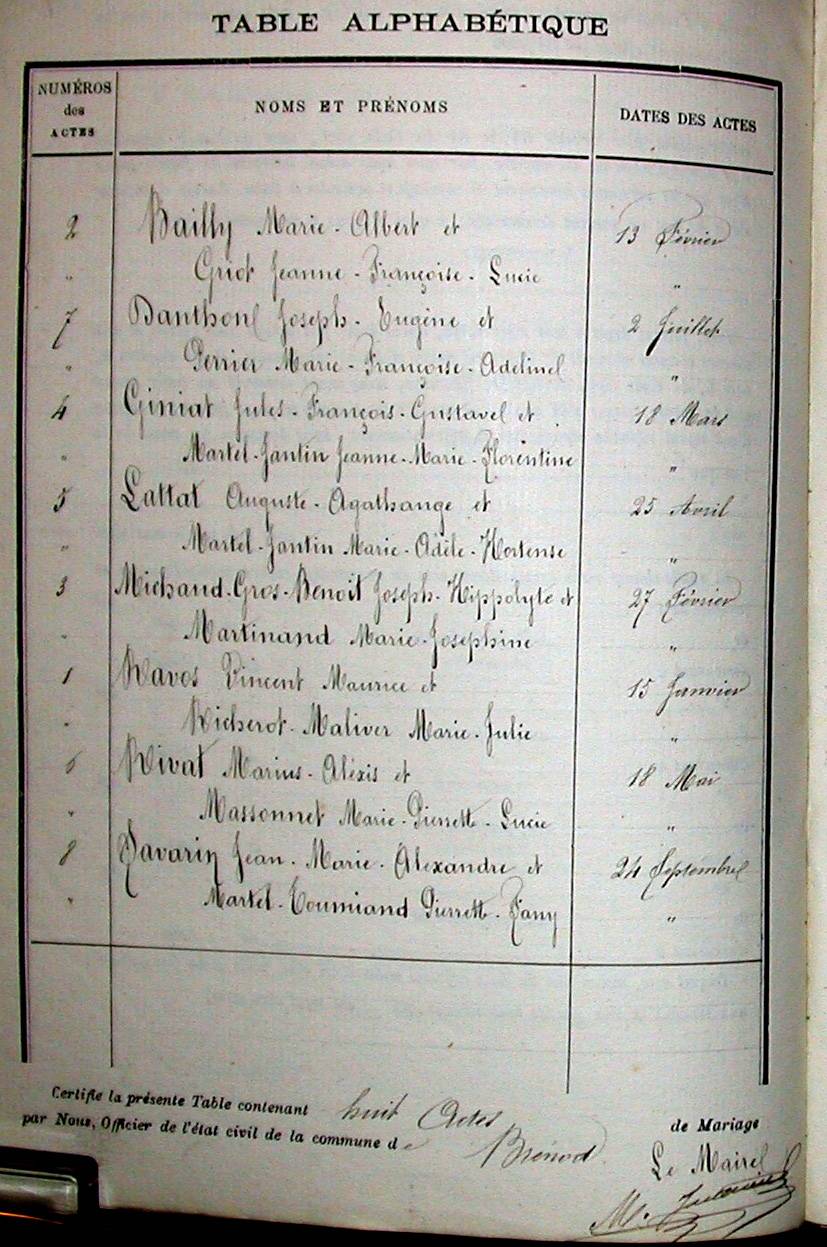 TABLE ALPHABÉTIQUE
NUMÉROS des ACTES NOMS ET PRÉNOMS DATES DES ACTES
2 Bailly Marie-Albert et 13 Février
" Griot Jeanne-Françoise-Lucie "
7 Banthone Joseph-Eugène et 2 Juillet
" Perrier Marie-Françoise-Adeline "
4 Giniat Jules-François-Gustave et 18 Mars
" Martel-Jantin Jeanne-Marie-Florentine "
5 Lattat Auguste-Agathange et 25 Avril
" Martel-Jantin Marie-Adèle-Hortense "
3 Michaud-Gros-Benoit Joseph-Hippolyte et 27 Février
" Martinand Marie-Josephine "
1 Ravos Vincent Maurice et 15 Janvier
" Richerot-Maliver Marie-Julie "
6 Rivat Marius-Aléxis et 18 Mai
" Massonnet Marie-Pierrette-Lucie "
8 Savarin Jean-Marie-Alexandre et 24 Septembre
" Martel-Toumiand Pierrette-Fany "
Certifie la présente Table contenant huit Actes de Mariage
par Nous, Officier de l'état civil de la commune de Brénod
Le Maire